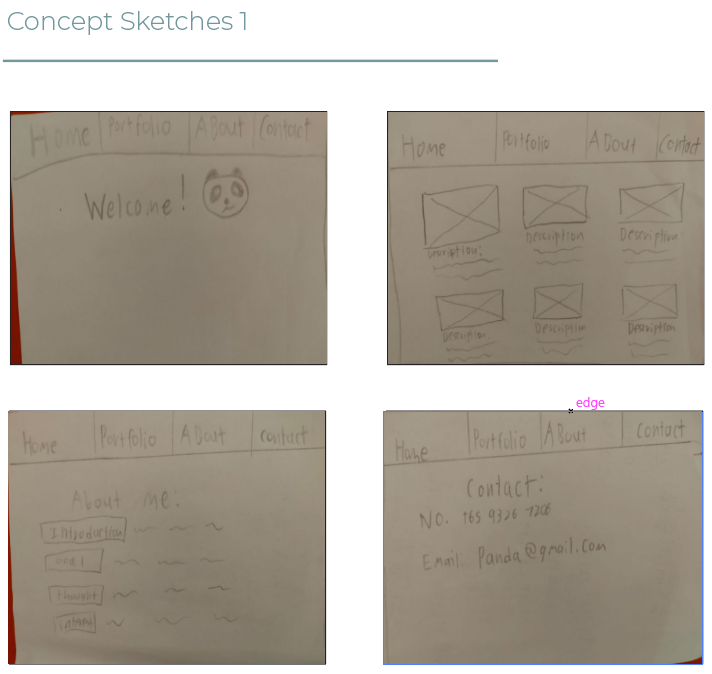 Concept Sketches 1
Home Portfolio About Contact
Welcome!
Home Portfolio About Contact
Description:
Description
Description:
Description
Description
Description
edge
Home Portfolio About contact
About me:
Introduction
Goal
Thought
Home Portfolio About Contact
Contact:
NO. 165 9326
Email: Panda@gmail.com